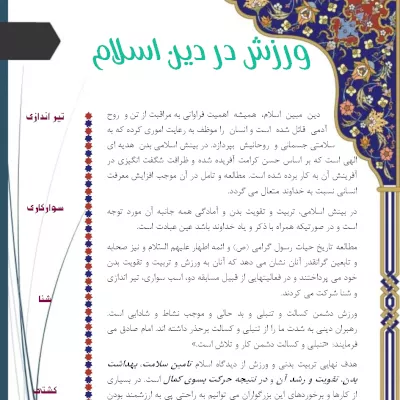 ورزش در دین اسلام
دین مبین اسلام، همیشه اهمیت فراوانی به مراقبت از تن و روح
آدمی قائل شده است و انسان را موظف به رعایت اموری کرده که به
سلامتی جسمانی و روحانیش بپردازد. در بینش اسلامی بدن هدیه ای
الهی است که بر اساس حسن کرامت آفریده شده و ظرافت شگفت انگیزی در
آفرینش آن به کار برده شده است. مطالعه و تامل در آن موجب افزایش معرفت
انسانی نسبت به خداوند متعال می گردد.
در بینش اسلامی، تربیت و تقویت بدن و آمادگی همه جانبه آن مورد توجه
است و در صورتیکه همراه با ذکر و یاد خداوند باشد عین عبادت است.
مطالعه تاریخ حیات رسول گرامی (ص) و ائمه اطهار علیهم السّلام و نیز صحابه
و تابعین گرانقدر آنان نشان می دهد که آنان به ورزش و تربیت و تقویت بدن
خود می پرداختند و در فعالیتهایی از قبیل مسابقه دو، اسب سواری، تیر اندازی
و شنا شرکت می کردند.
ورزش دشمن کسالت و تنبلی و بد حالی و موجب نشاط و شادابی است.
رهبران دینی به شدت ما را از تنبلی و کسالت برحذر داشته اند. امام صادق می
فرمایند: «تنبلی و کسالت دشمن کار و تلاش است.»
هدف نهایی تربیت بدنی و ورزش از دیدگاه اسلام تامین سلامت، بهداشت
بدن، تقویت و رشد آن و در نتیجه حرکت بسوی کمال است. در بسیاری
از کارها و برخوردهای این بزرگواران می توانیم به راحتی پی به ارزشمند بودن
تیر اندازی
سوارکاری
شنا
کشتی